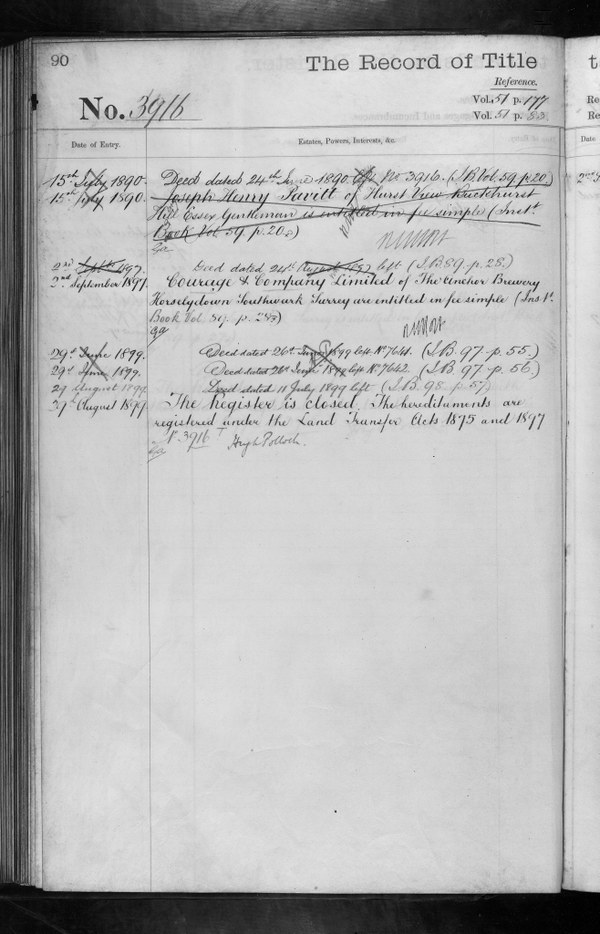 90
The Record of Title
Reference.
No. 3916
Vol. 51 p. 177
Vol. 51 p.
Date of Entry.
Estates, Powers, Interests, &c.
15th July 1890. Deed dated 24th June 1890. No 3916. (I.B. Vol. 59. p. 20.)
15th July 1890. Joseph Henry Pavitt of Hurst View Buckhurst
Hill Essex Gentleman is entitled in fee simple (Inst.
Book Vol 59. p. 20.)
2nd 1897. Deed dated 24th left (I.B. 89. p. 28.)
2nd September 1897. Courage & Company Limited of The Anchor Brewery
Horselydown Southwark Surrey are entitled in fee simple (Inst.
Book Vol 89. p. 28)
29th June 1899. Deed dated 26th June 1899 left No 7641. (I.B. 97. p. 55.)
29th June 1899. Deed dated 28th June 1899 left No 7642. (I.B. 97. p. 56.)
29 August 1899 Deed dated 11 July 1899 left (I.B. 98. p. 57)
29th August 1899 The Register is closed. The hereditaments are
registered under the Land Transfer Acts 1875 and 1897
No. 3916
Hugh Pollock.
t
Re
Re
Date